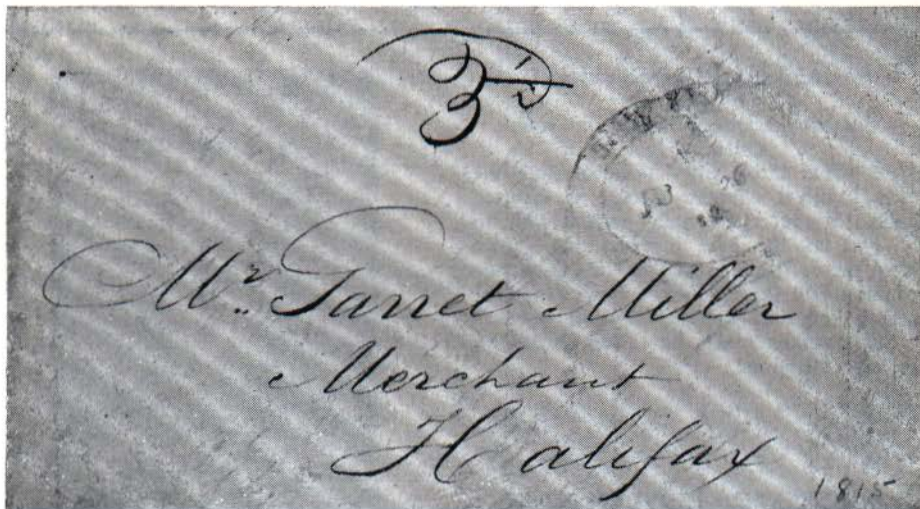 3
26
Mr. Garret Miller
Merchant
Halifax
1815